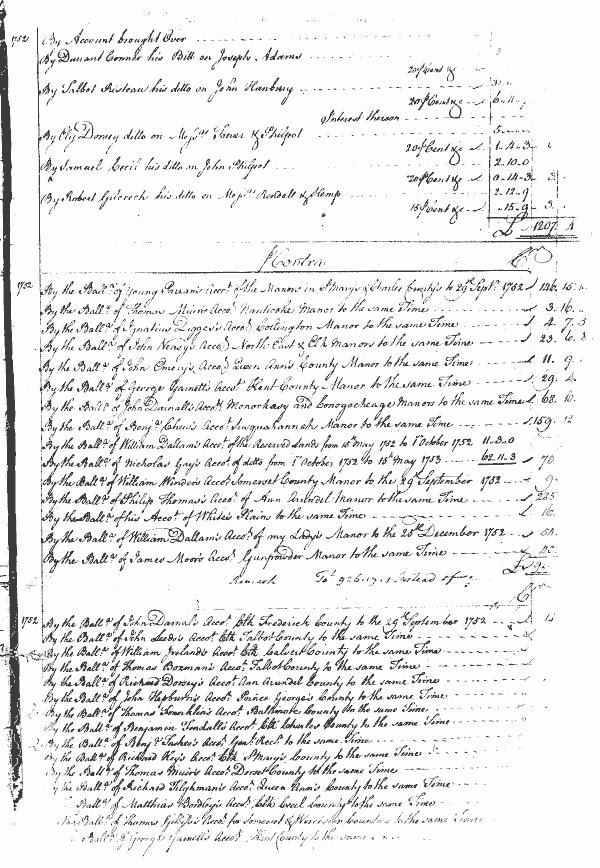 1752 By Account brought Over
By Durrant Conner his Bill on Joseph Adams
20 ⅌ Cent &c
By Talbot Risteau his ditto on John Hanbury
20 ⅌ Cent &c 6-11-
Interest thereon
By Ely Dorsey ditto on Mess.rs & Philpot 5
20 ⅌ Cent &c 1-4-3
By Samuel Cecil his ditto on John Philpot 2-10-0
20 ⅌ Cent &c 0-14-3 3
By Robert Gilcroch his ditto on Mess.rs Rendall & 2-12-9
15 ⅌ Cent &c -15-9 3
£ 1207 4
⅌ Contra Cr
1752 By the Ball.ce of Young Acco.t of the Manors in S.t Mary's & Charles County's to 29 Sept.r 1752 £ 146 15
By the Ball.ce of Thomas Muir's Acco.t Nanticoke Manor to the same Time £ 3 16
By the Ball.ce of Ignatius Digges's Acco.t Collington Manor to the same Time £ 4 7 5
By the Ball.ce of John Acco.t North East & Elk Manors to the same Time £ 23 6 8
By the Ball.ce of John Emory's Acco.t Queen Ann's County Manor to the same Time £ 11 9
By the Ball.ce of George Garnett's Acco.t Kent County Manor to the same Time £ 29 4
By the Ball.ce of John Darnall's Acco.t Monockasy and Conogocheage Manors to the same Time £ 68 10
By the Ball.ce of Benj.n Chew's Acco.t Susquahannah Manor to the same Time £ 159 12
By the Ball.ce of William Dallam's Acco.t of the Reserved Lands from 15 May 1752 to 1.st October 1752 11-3-0
By the Ball.ce of Nicholas Gay's Acco.t of ditto from 1.st October 1752 to 15.th May 1753 62-11-3 £ 73
By the Ball.ce of William Winder's Acco.t Somerset County Manor to the 29.th September 1752 £ 9
By the Ball.ce of Philip Thomas's Acco.t of Ann Arundel Manor to the same Time £ 285
By the Ball.ce of his Acco.t of White's Plain to the same Time £ 16
By the Ball.ce of William Dallam's Acco.t of my Lady's Manor to the 25.th December 1752 £ 54
By the Ball.ce of James Moor's Acco.t Gunpowder Manor to the same Time £ 45
Remark Tot.l 926.19.1 instead of £
Cr
1752 By the Ball.ce of John Darnal's Acco.t Clk Frederick County to the 29.th September 1752 £ 14
By the Ball.ce of John Leeds's Acco.t Clk Talbot County to the same Time
By the Ball.ce of William Ireland's Acco.t Clk Calvert County to the same Time
By the Ball.ce of Thomas Bozman's Acco.t Talbot County to the same Time
By the Ball.ce of Richard Dorsey's Acco.t Ann Arundel County to the same Time
By the Ball.ce of John Hepburn's Acco.t Prince George's County to the same Time
By the Ball.ce of Thomas Franklin's Acco.t Baltimore County to the same Time
By the Ball.ce of Benjamin Fendall's Acco.t Clk Charles County to the same Time
By the Ball.ce of Benj.n Tasker's Acco.t Gen.l Rec.r to the same Time
By the Ball.ce of Richard Key's Acco.t Clk S.t Mary's County to the same Time
By the Ball.ce of Thomas Muir's Acco.t Dorset County to the same Time
By the Ball.ce of Richard Tilghman's Acco.t Queen Ann's County to the same Time
Ball.ce of Matthias Bordley's Acco.t Clk Cecil County to the same Time
Ball.ce of Thomas Gillis's Acco.t for Somerset & Worcester Counties to the same Time
Ball.ce of George Garnett's Acco.t Kent County to the same